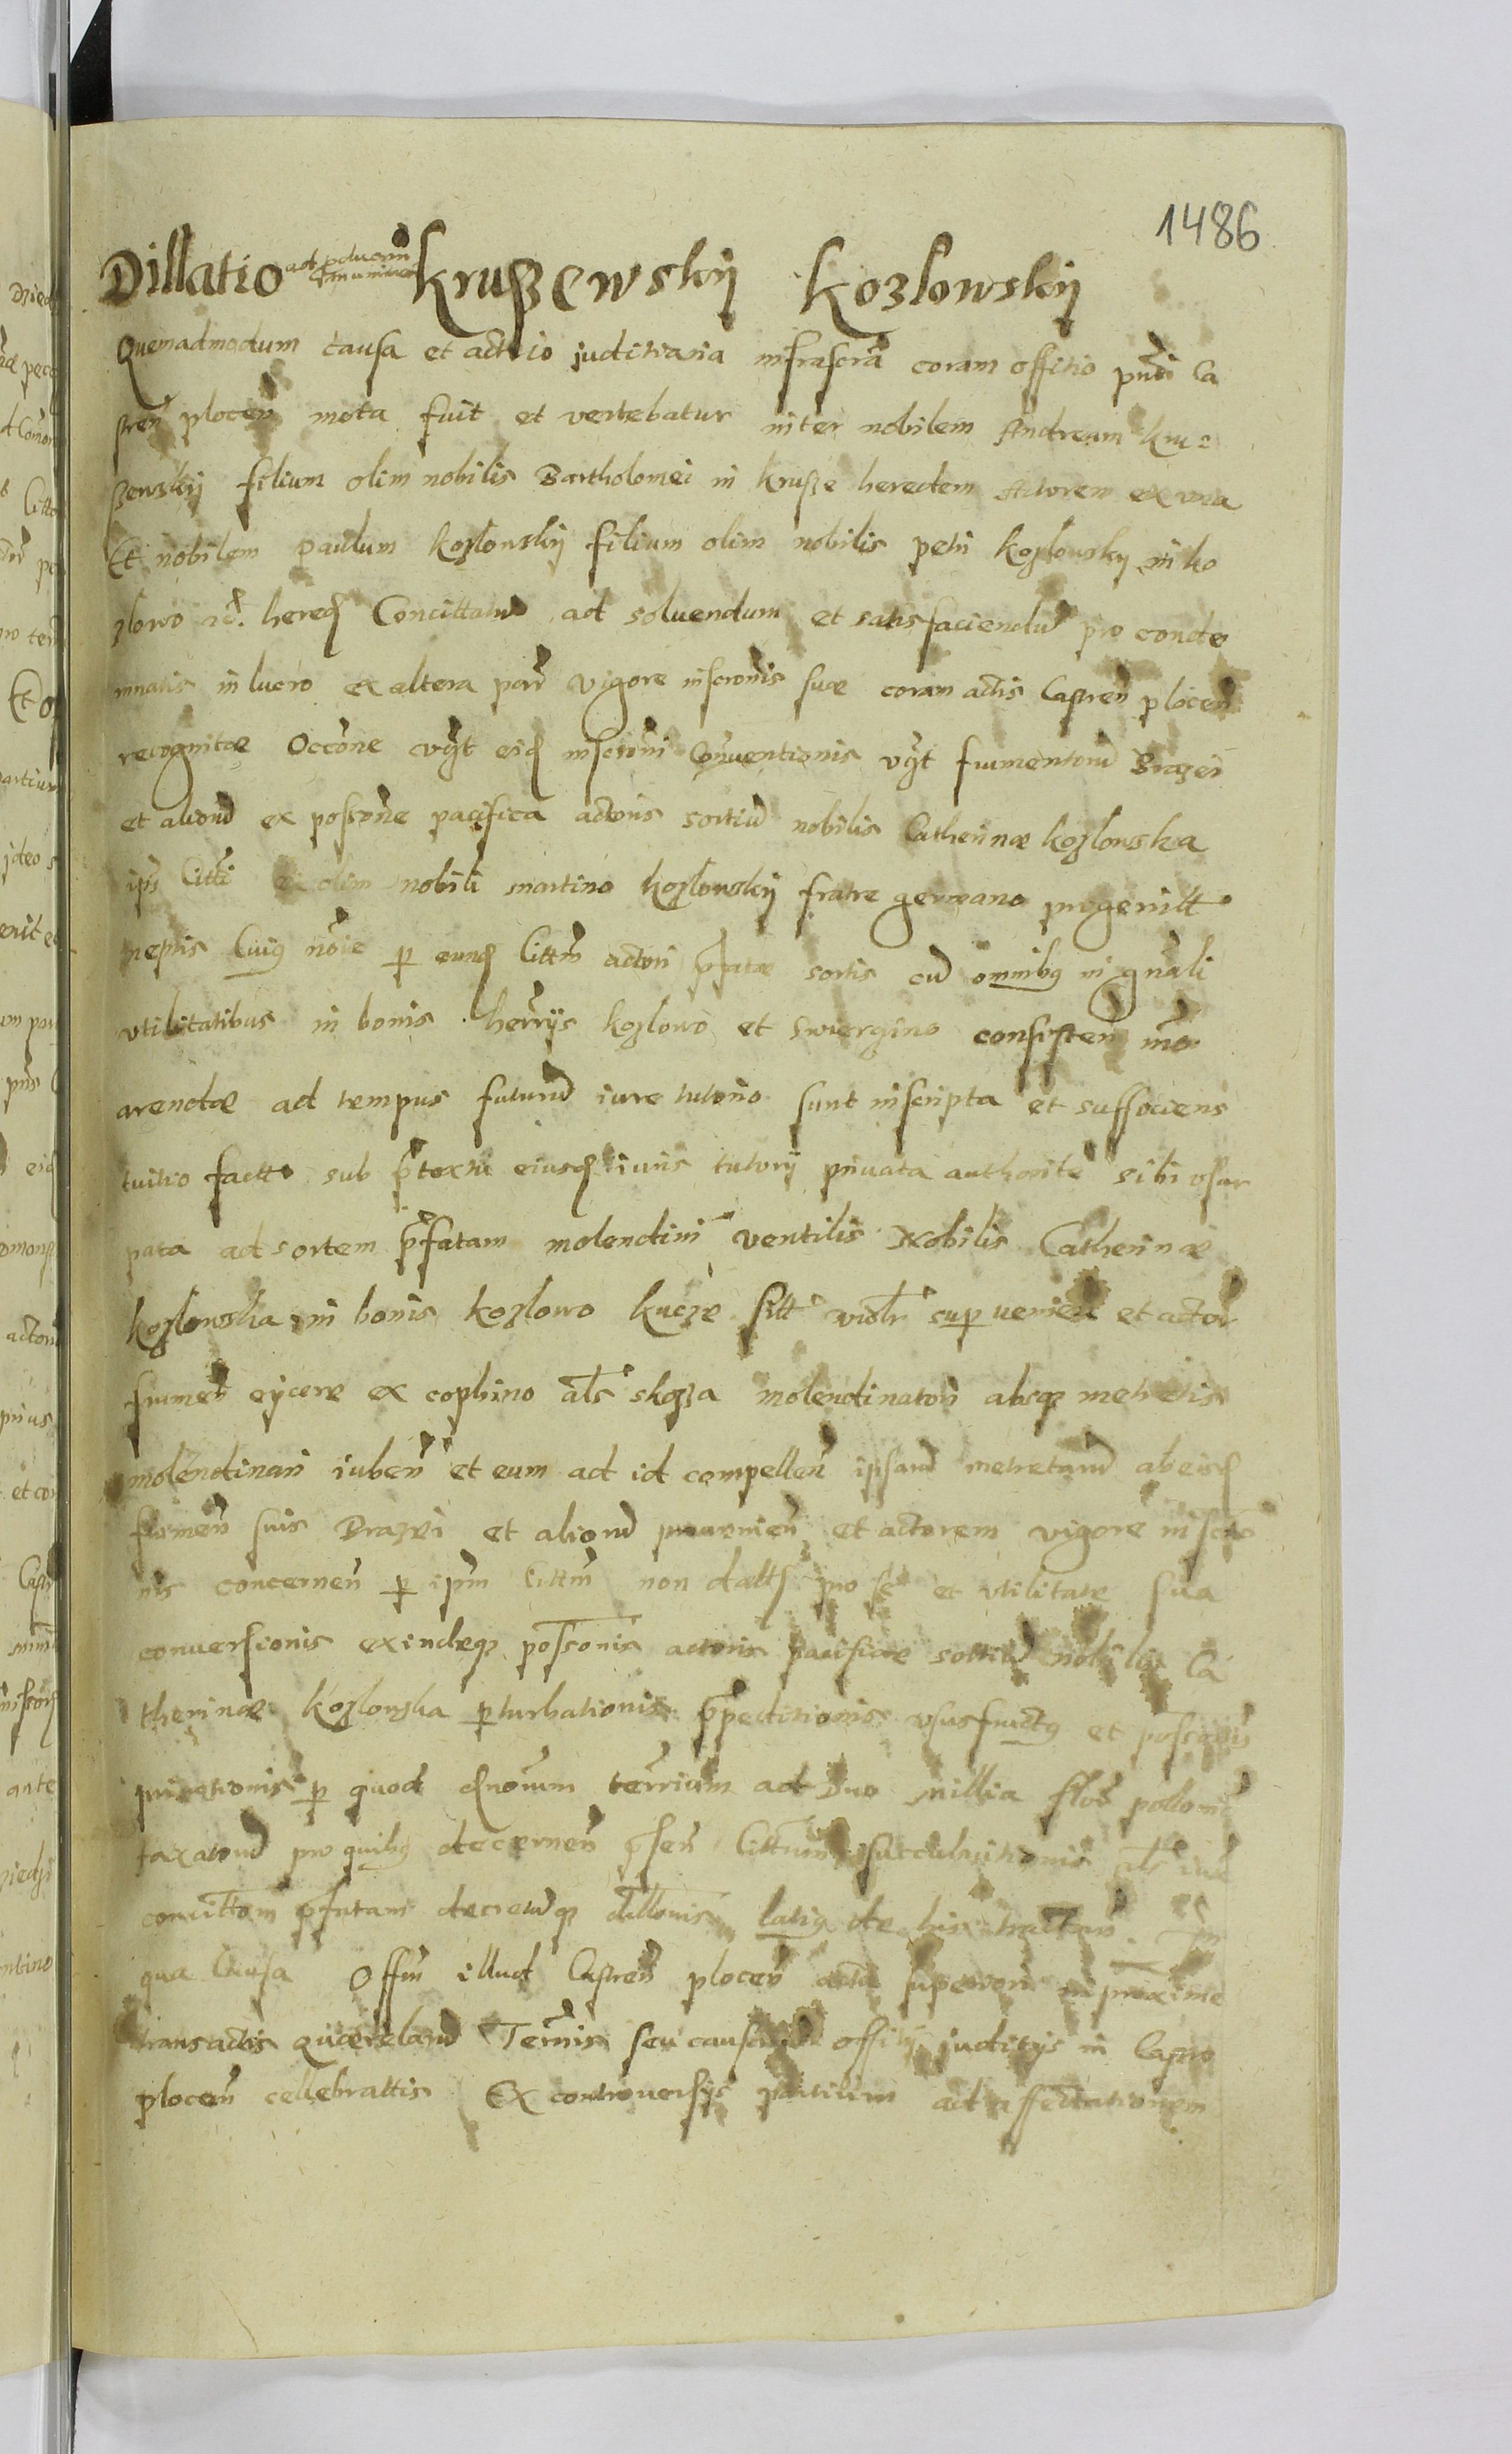 1486
Dillatio ad Kruszewskij Kozlowskij
Quemadmodum causa et acttio juditiaria infrascra coram offitio pnti Ca
stren plocen mota fuit et vertebatur inter nobilem Andream Kru=
szewskij filium olim nobilis Bartholomei in Krusze heredem Actorem ex una
Et nobilem Paulum Kozlowskij filium olim nobilis Petri Kozlowskij in Ko
zlowo hered Concittatum ad soluendum et satisfaciendum pro conde
mnatis in lucro ex altera par vigore inscronis suæ coram actis Castren plocen
recognitæ Occone cuiut eid inscroni Conuentionis frumentorum Brazei
et aliorum ex possone pacifica actoris sortium nobilis Catherinæ Kozlowska
ips Citti ex olim nobili Martino Kozlowskij fratre germano progenitt
neptis Cuius noie p eund Cittm actori pfatæ sortis cum omnibus in gnali
vtilitatibus in bonis herrijs Kozlowo et Swiergino consisten mo
arendæ ad tempus futurum iure tutorio sunt inscripta et suffociens
tuitio factto sub ptextu eiusd iuris tutorij priuata authorite sibi vsur
pata ad sortem pfatam molendini ventilis Nobilis Catherinæ
Kozlowska in bonis Kozlowo Kucze sitt violr superuenire et actor
frumen eijcere ex cophino als skosza molendinatori absque metretis
molendinari iuben et eum ad id compellen ipsarum metretarum ab eisd
frumen suis Brazei et aliorum prouenien et actorem vigore inscro
nis concernen p ipm Cittm non datt pro se et vtilitate sua
conuersionis exindeque possonis actoris pacificæ sortium nobilis Ca
therinæ Kozlowska pturbationis ppeditionis vsusfructus et possonis
priuationis p quod terrium ad Duo millia flor pollonic
taxatorum pro quibus decernen Cittum als iux
concittom pfatam decretumque dillonis latius de his tractan. In
qua Causa Offm illud Castren plocen actu superiori in proxime
transactis quærelarum Termis seu causarum offitij juditijs in Castro
plocen cellebrattis Ex controuersijs partium ad affectationem